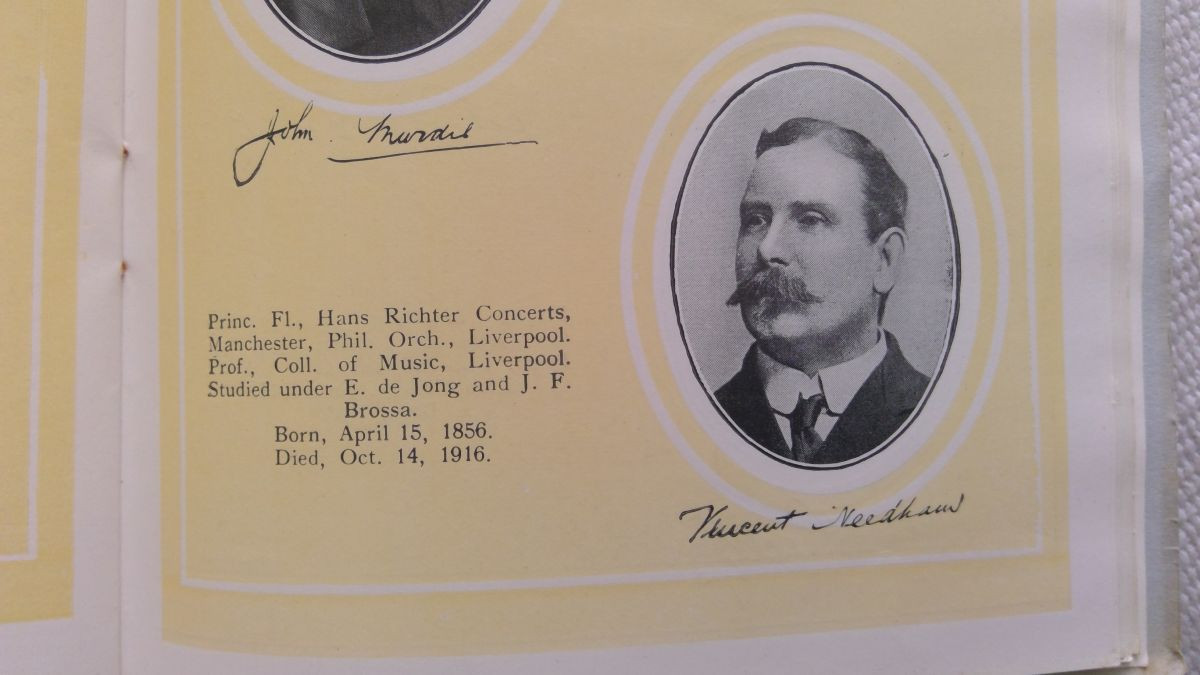 John Murdie
Princ. Fl., Hans Richter Concerts,
Manchester, Phil. Orch., Liverpool.
Prof., Coll. of Music, Liverpool.
Studied under E. de Jong and J. F.
Brossa.
Born, April 15, 1856.
Died, Oct. 14, 1916.
Vincent Needham